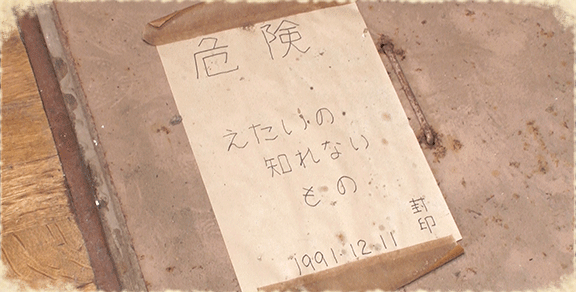 危険
えたいの
知れない
もの
封印
1991.12.11